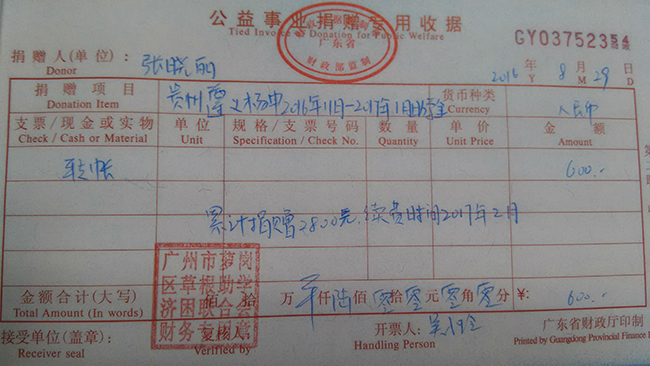 公益事业捐赠专用收据
Tied Invoice Donation for Public Welfare
广东省
财政部监制
GY03752354
捐赠人(单位): 张晓丽
Donor
2016 Y 8 M 29 D
捐赠项目 贵州遵义杨中2016年11月-2017年1月助学金 货币种类 人民币
Donation Item Currency
支票/现金或实物 单位 规格/支票号码 数量 单价 金额
Check / Cash or Material Unit Specification / Check No. Quantity Unit Price Amount
转帐 600.-
累计捐赠2800元,续费时间2017年2月
广州市萝岗
区草根助学
济困联合会
财务专用章
金额合计(大写) 佰 拾 万 仟 陆 佰 零 拾 零 元 零 角 零 分 ¥: 600.-
Total Amount (In words)
接受单位(盖章): 复核人: 开票人: 广东省财政厅印制
Receiver seal Verified by Handling Person Printed by Guangdong Provincial Finance